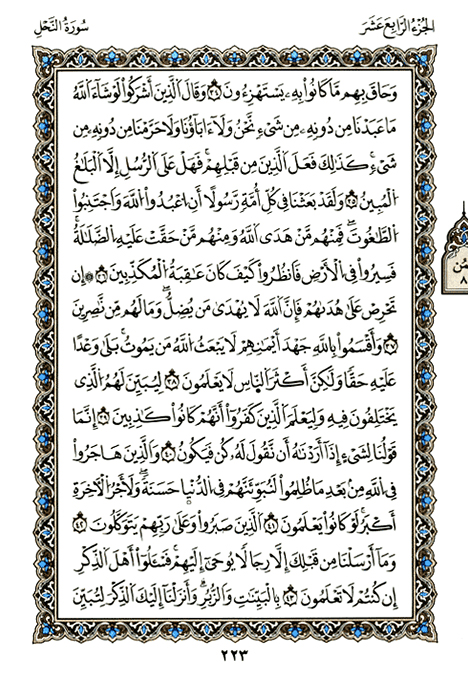 الجُزْءُ الرَّابِعَ عَشَرَ
سُورَةُ النَّحْلِ
وَحَاقَ بِهِم مَّا كَانُوا۟ بِهِۦ يَسْتَهْزِءُونَ ٣٤ وَقَالَ ٱلَّذِينَ أَشْرَكُوا۟ لَوْ شَآءَ ٱللَّهُ
مَا عَبَدْنَا مِن دُونِهِۦ مِن شَىْءٍ نَّحْنُ وَلَآ ءَابَآؤُنَا وَلَا حَرَّمْنَا مِن دُونِهِۦ مِن
شَىْءٍ كَذَٰلِكَ فَعَلَ ٱلَّذِينَ مِن قَبْلِهِمْ فَهَلْ عَلَى ٱلرُّسُلِ إِلَّا ٱلْبَلَٰغُ
ٱلْمُبِينُ ٣٥ وَلَقَدْ بَعَثْنَا فِى كُلِّ أُمَّةٍ رَّسُولًا أَنِ ٱعْبُدُوا۟ ٱللَّهَ وَٱجْتَنِبُوا۟
ٱلطَّٰغُوتَ فَمِنْهُم مَّنْ هَدَى ٱللَّهُ وَمِنْهُم مَّنْ حَقَّتْ عَلَيْهِ ٱلضَّلَٰلَةُ
فَسِيرُوا۟ فِى ٱلْأَرْضِ فَٱنظُرُوا۟ كَيْفَ كَانَ عَٰقِبَةُ ٱلْمُكَذِّبِينَ ٣٦ ۞ إِن
تَحْرِصْ عَلَىٰ هُدَىٰهُمْ فَإِنَّ ٱللَّهَ لَا يُهْدَىٰ مَن يُضِلُّ وَمَا لَهُم مِّن نَّٰصِرِينَ
٣٧ وَأَقْسَمُوا۟ بِٱللَّهِ جَهْدَ أَيْمَٰنِهِمْ لَا يَبْعَثُ ٱللَّهُ مَن يَمُوتُ بَلَىٰ وَعْدًا
عَلَيْهِ حَقًّا وَلَٰكِنَّ أَكْثَرَ ٱلنَّاسِ لَا يَعْلَمُونَ ٣٨ لِيُبَيِّنَ لَهُمُ ٱلَّذِى
يَخْتَلِفُونَ فِيهِ وَلِيَعْلَمَ ٱلَّذِينَ كَفَرُوٓا۟ أَنَّهُمْ كَانُوا۟ كَٰذِبِينَ ٣٩ إِنَّمَا
قَوْلُنَا لِشَىْءٍ إِذَآ أَرَدْنَٰهُ أَن نَّقُولَ لَهُۥ كُن فَيَكُونُ ٤٠ وَٱلَّذِينَ هَاجَرُوا۟
فِى ٱللَّهِ مِنۢ بَعْدِ مَا ظُلِمُوا۟ لَنُبَوِّئَنَّهُمْ فِى ٱلدُّنْيَا حَسَنَةً وَلَأَجْرُ ٱلْأَخِرَةِ
أَكْبَرُ لَوْ كَانُوا۟ يَعْلَمُونَ ٤١ ٱلَّذِينَ صَبَرُوا۟ وَعَلَىٰ رَبِّهِمْ يَتَوَكَّلُونَ ٤٢
وَمَآ أَرْسَلْنَا مِن قَبْلِكَ إِلَّا رِجَالًا يُوحَىٰٓ إِلَيْهِمْ فَسْـَٔلُوٓا۟ أَهْلَ ٱلذِّكْرِ
إِن كُنتُمْ لَا تَعْلَمُونَ ٤٣ بِٱلْبَيِّنَٰتِ وَٱلزُّبُرِ وَأَنزَلْنَآ إِلَيْكَ ٱلذِّكْرَ لِتُبَيِّنَ
٢٢٣